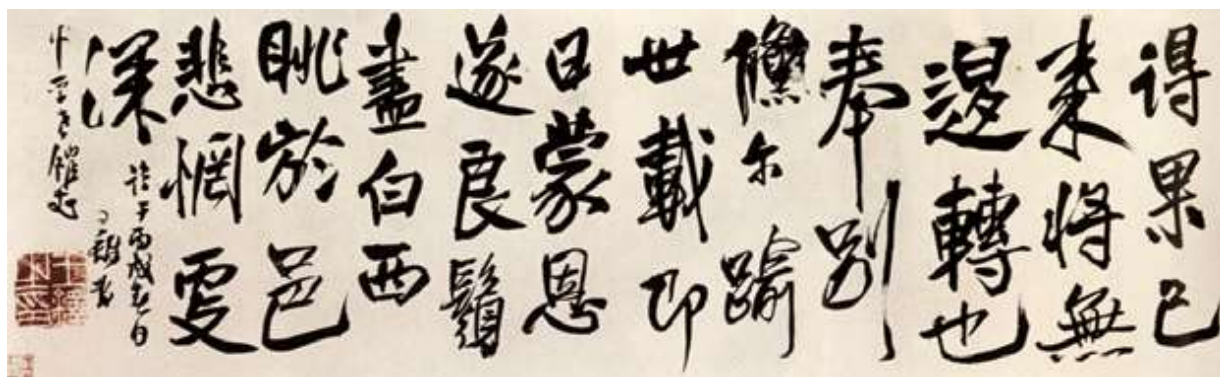 得果已
来将無
退轉也
奉别
儵尔踰
世載即
日蒙恩
遂良鬚
盡白西
眺於邑
悲惘更
深
丙戌